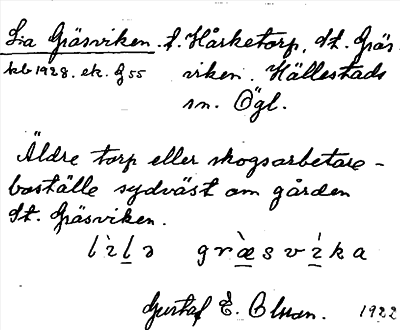 Lia Gräsviken. f. Hårketorp, St. Gräs-
kab 1928. ek. g 55 viken. Hällestads
sn. Ögl.
Äldre torp eller skogsarbetare-
boställe sydväst om gården
St. Gräsviken.
lìlə græ̀svíka
Gustaf E. Olsson. 1922